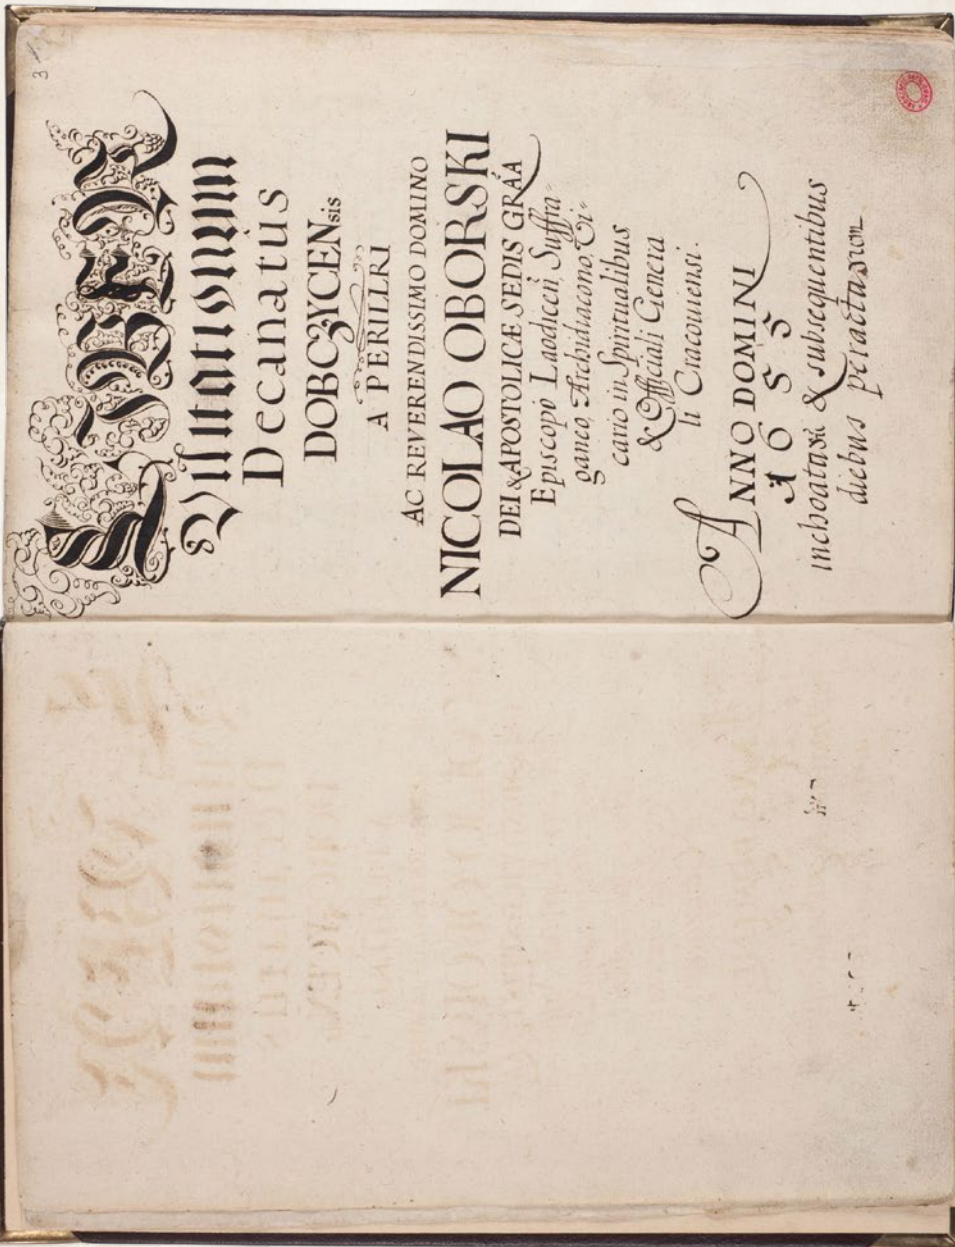 3
LIBER
Visitationum
Decanatus
DOBCZYCENsis
A PERILLRI
AC REVERENDISSIMO DOMINO
NICOLAO OBORSKI
DEI & APOSTOLICÆ SEDIS GRÃA
Episcopo Laodiceñ, Suffra⸗
ganeo, Archidiacono, Vi⸗
cario in Spiritualibus
& Officiali Genera
li Cracouiensi.
ANNO DOMINI
1655
inchoatarū & subsequentibus
diebus peractarum